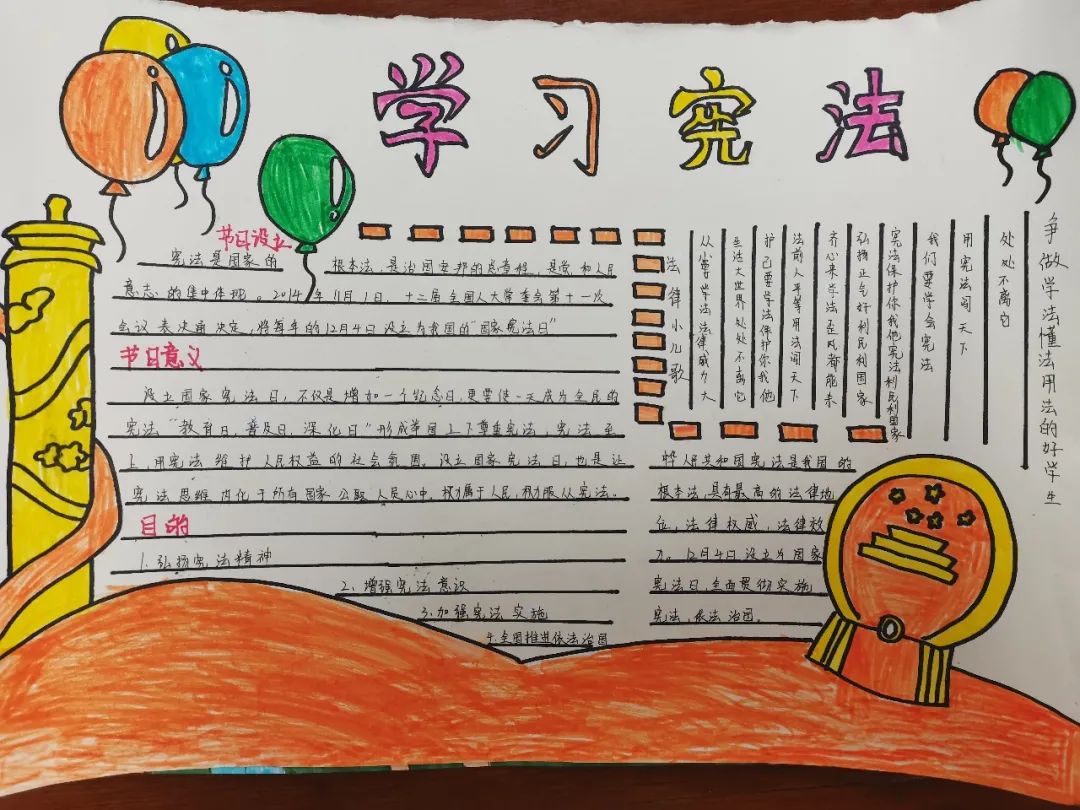 学习宪法
节日设立
宪法是国家的 根本法,是治国安邦的总章程,是党和人民
意志的集中体现。2014年11月1日,十二届全国人大常委会第十一次
会议表决通决定,将每年的12月4日设立为我国的“国家宪法日”
节日意义
设立国家宪法日,不仅是增加一个纪念日,更要使一天成为全民的
宪法“教育日,普及日,深化日”形成举国上下尊重宪法,宪法至
上,用宪法维护人民权益的社会氛围。设立国家宪法日,也是让
宪法思维内化于所有国家公职人员心中,权力属于人民,权力服从宪法。
目的
1.弘扬宪法精神
2.增强宪法意识
3.加强宪法实施
4.全国推进依法治国
法律小儿歌
从小要学法法律威力大
生活大世界处处不离它
护己要学法保护你我他
法前人平等用法闯天下
齐心来学法歪风都能杀
弘扬正气好利民利国家
宪法保护你我他宪法利民利国家
我们要学会宪法
用宪法闯天下
处处不离它
争做学法懂法用法的好学生
人民共和国宪法是我国的
根本法,具有最高的法律地
位,法律权威,法律效
力。12月4日设立为国家
宪法日,全面贯彻实施
宪法,依法治国。